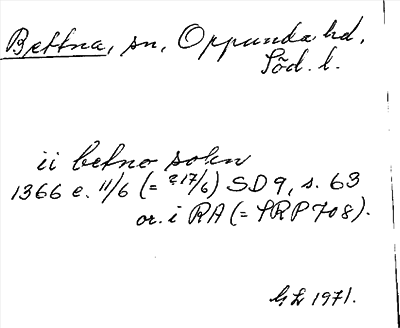 Bettna, sn, Oppunda hd,
Söd. l.
ii betno sokn
1366 e. 11/6 (= ? 17/6) SD 9, s. 63
or. i RA (= SRP 708).
G Lr 1971.